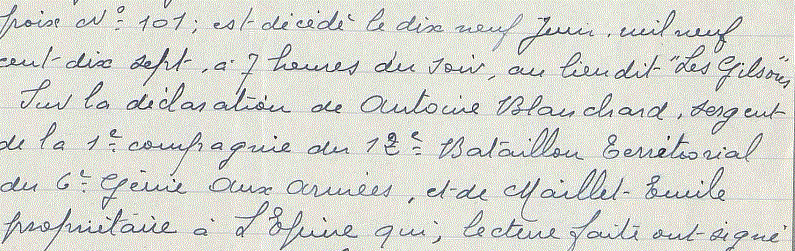 poix N° 101; est décédé le dix neuf Juin, mil neuf
cent dix sept, à 7 heures du soir, au lieu dit "Les Gilsons"
Sur la déclaration de Antoine Blanchard, sergent
de la 1e compagnie du 12e Bataillon Territorial
du 6e Génie aux armées, et de Maillet Emile
propriétaire à L'Epine qui, lecture faite ont signé